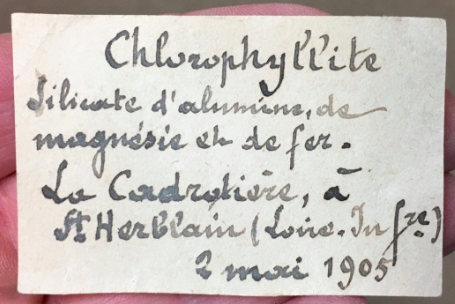 Chlorophyllite
Silicate d'alumine, de
magnésie et de fer.
La Cadrotière, à
St Herblain (Loire-Infre)
2 mai 1905